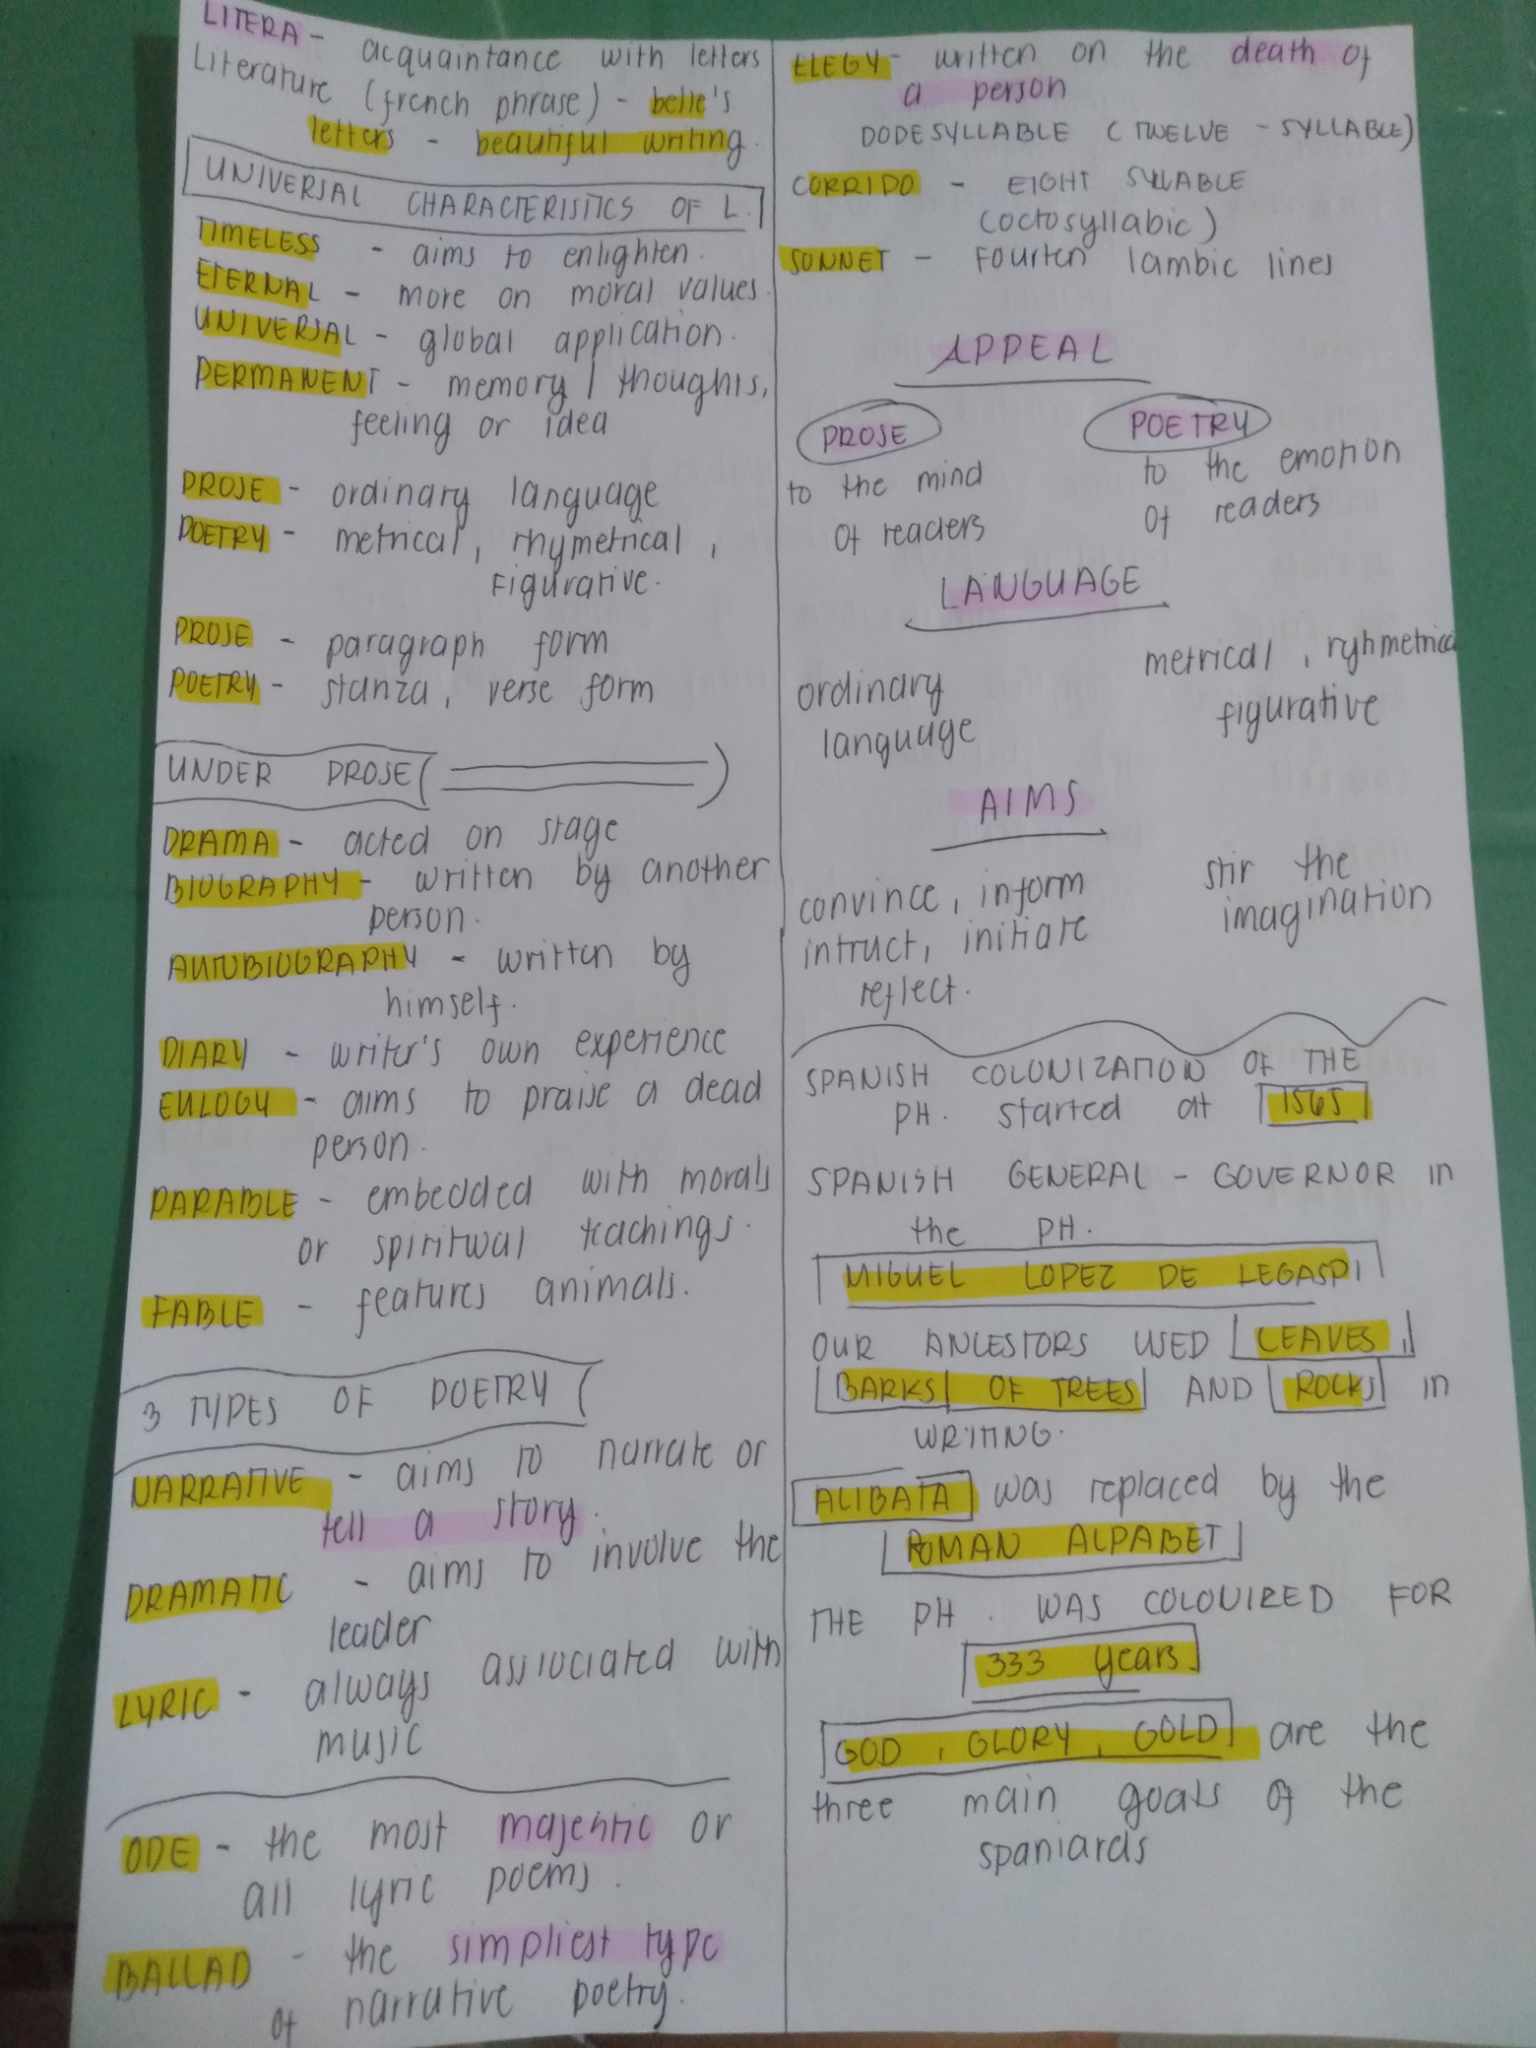 LITERA - acquaintance with letters
Literature (french phrase) - belle's
letters - beautiful writing.
UNIVERSAL CHARACTERISTICS OF L.
TIMELESS - aims to enlighten.
ETERNAL - more on moral values.
UNIVERSAL - global application.
PERMANENT - memory / thoughts,
feeling or idea
PROSE - ordinary language
POETRY - metrical, rhymetrical,
Figurative.
PROSE - paragraph form
POETRY - stanza, verse form
UNDER PROSE
DRAMA - acted on stage
BIOGRAPHY - written by another
person.
AUTOBIOGRAPHY - written by
himself.
DIARY - writer's own experience
EULOGY - aims to praise a dead
person.
PARABLE - embedded with morals
or spiritwal teachings.
FABLE - features animals.
3 TYPES OF POETRY
NARRATIVE - aims to narrate or
tell a story.
DRAMATIC - aims to involve the
leader
LYRIC - always associated with
music
ODE - the most majestic or
all lyric poems.
BALLAD - the simpliest type
of narrative poetry.
ELEGY - written on the death of
a person
DODESYLLABLE (TWELVE - SYLLABLE)
CORRIDO - EIGHT SYLLABLE
(octosyllabic)
SONNET - Fourten Iambic lines
APPEAL
PROSE POETRY
to the mind to the emotion
of readers of readers
LANGUAGE
ordinary metrical, ryhmetrica
language figurative
AIMS
convince, inform stir the
intruct, initiate imagination
reflect.
SPANISH COLONIZATION OF THE
PH. started at 1565
SPANISH GENERAL - GOVERNOR in
the PH.
MIGUEL LOPEZ DE LEGASPI
OUR ANCESTORS USED LEAVES,
BARKS OF TREES AND ROCKS in
WRITING.
ALIBATA was replaced by the
ROMAN ALPABET
THE PH. WAS COLONIZED FOR
333 years.
GOD, GLORY, GOLD are the
three main goals of the
spaniards